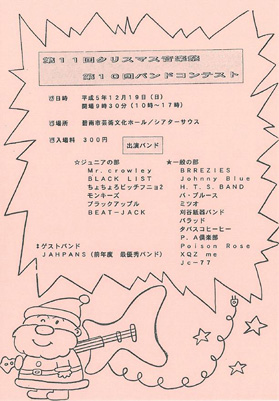 第11回クリスマス音楽祭
第10回バンドコンテスト
日時 平成5年12月19日(日)
開場9時30分(10時〜17時)
場所 碧南市芸術文化ホール/シアターサウス
入場料 300円
出演バンド
☆ジュニアの部
Mr. crowley
BLACK LIST
ちょろちょろピッチフニョ2
モンキーズ
ブラックアップル
BEAT-JACK
★一般の部
BRREZIES
Johnny Blue
H. T. S. BAND
パ・ブルース
ミツオ
刈谷紙器バンド
バラッド
タバスコーヒー
P. A倶楽部
Poison Rose
XQZ me
Jc-77
ゲストバンド
JAHPANS(前年度 最優秀バンド)